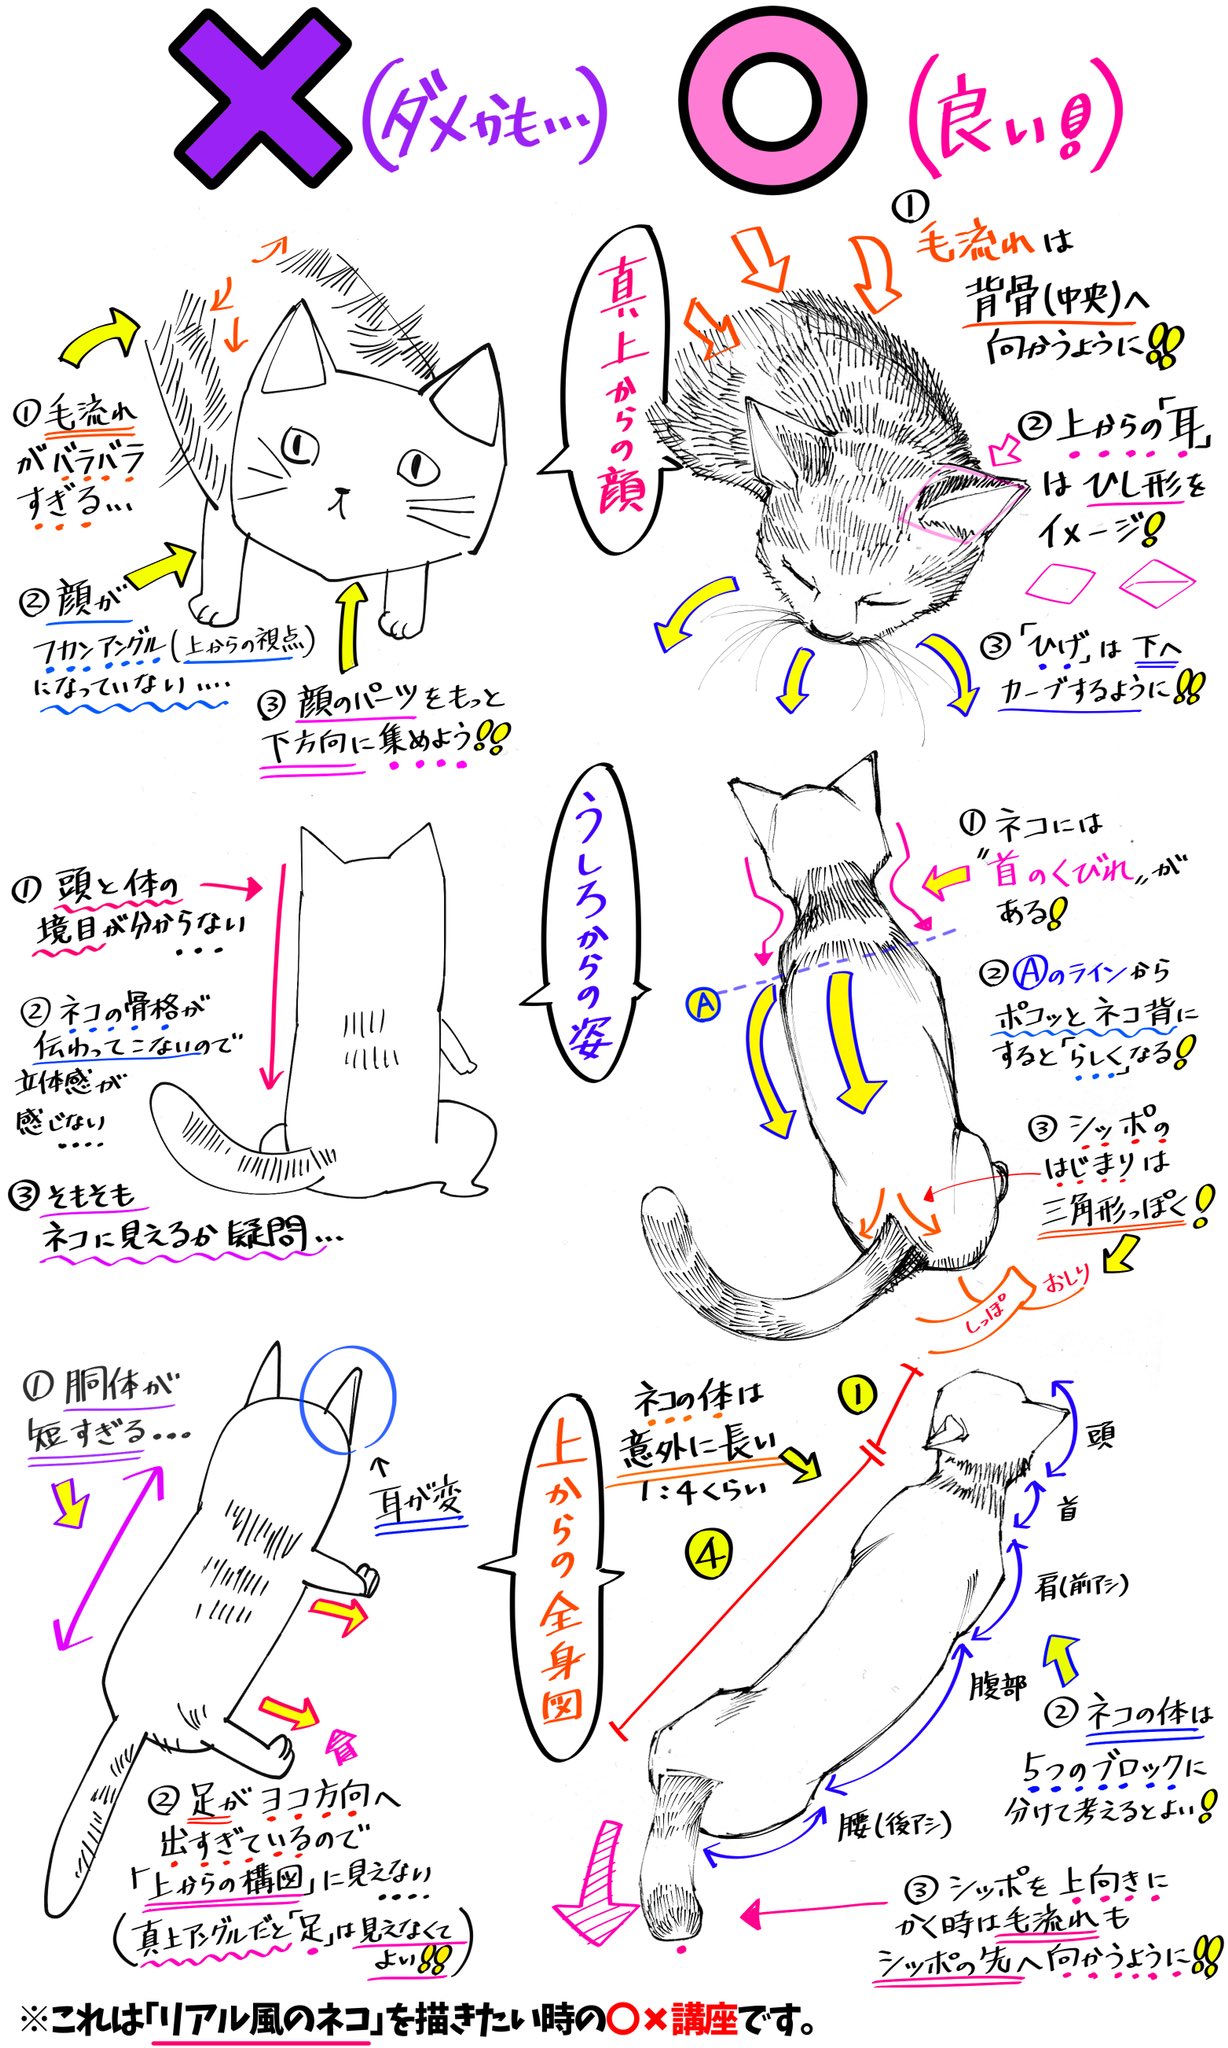 (ダメかも…)
(良い!)
真上からの顔
①毛流れ
がバラバラ
すぎる…
②顔が
フカンアングル(上からの視点)
になっていない….
③顔のパーツをもっと
下方向に集めよう!!
①
毛流れは
背骨(中央)へ
向かうように!!
②上からの「耳」
はひし形を
イメージ!
③「ひげ」は下へ
カーブするように!!
うしろからの姿
①頭と体の
境目が分からない
…
②ネコの骨格が
伝わってこないので
立体感が
感じない
….
③そもそも
ネコに見えるか疑問…
①ネコには
"首のくびれ"が
ある!
②Ⓐのラインから
ポコッとネコ背に
すると「らしく」なる!
Ⓐ
③シッポの
はじまりは
三角形っぽく!
おしり
しっぽ
上からの全身図
①胴体が
短すぎる…
↑
耳が変
②足がヨコ方向へ
出すぎているので
「上からの構図」に見えない
(真上アングルだと「足」は見えなくて
よい!!)
ネコの体は
意外に長い
1:4くらい
①
④
頭
首
肩(前アシ)
腹部
腰(後アシ)
②ネコの体は
5つのブロックに
分けて考えるとよい!
③シッポを上向きに
かく時は毛流れも
シッポの先へ向かうように!!
※これは「リアル風のネコ」を描きたい時の〇×講座です。